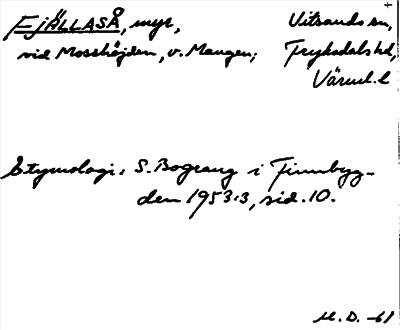 FJÄLLASÅ, myr,
vid Mosshöjden, v. Mangen;
Vitsands sn,
Fryksdals hd,
Värml. l
Etymologi: S. Bograng i Finnbyg-
den 1953:3, sid. 10.
M. D. -61